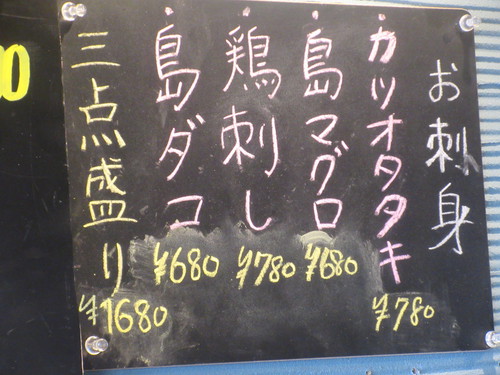 お刺身
・カツオタタキ
¥780
・島マグロ
¥680
・鶏刺し
¥780
・島ダコ
¥680
三点盛り
¥1680